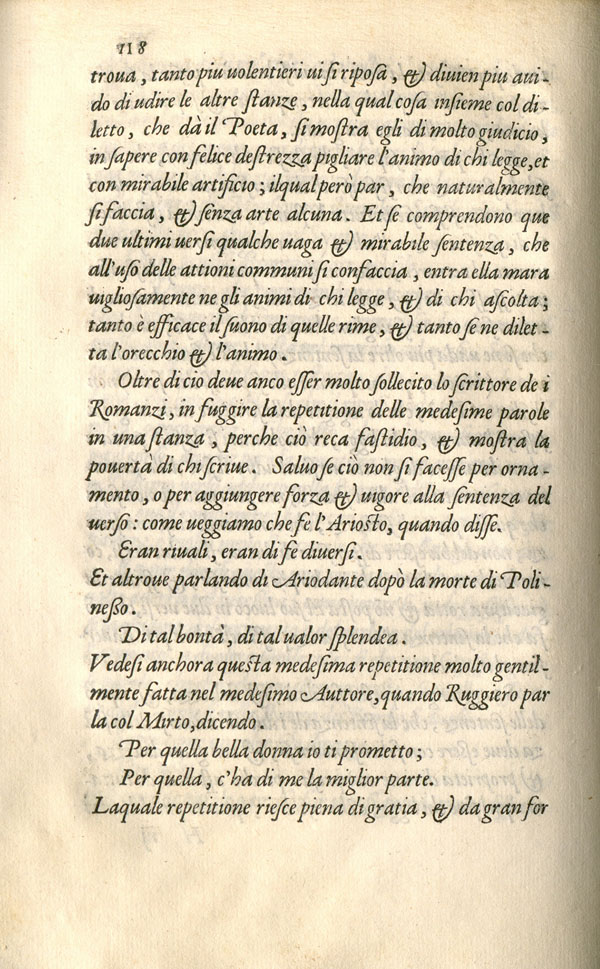 118
troua, tanto piu uolentieri ui si riposa, & diuien piu aui-
do di udire le altre stanze, nella qual cosa insieme col di-
letto, che dà il Poeta, si mostra egli di molto giudicio,
in sapere con felice destrezza pigliare l'animo di chi legge, et
con mirabile artificio; ilqual però par, che naturalmente
si faccia, & senza arte alcuna. Et se comprendono que
due ultimi uersi qualche uaga & mirabile sentenza, che
all'uso delle attioni communi si confaccia, entra ella mara
uigliosamente ne gli animi di chi legge, & di chi ascolta;
tanto è efficace il suono di quelle rime, & tanto se ne dilet-
ta l'orecchio & l'animo.
Oltre di cio deue anco esser molto sollecito lo scrittore de i
Romanzi, in fuggire la repetitione delle medesime parole
in una stanza, perche ciò reca fastidio, & mostra la
pouertà di chi scriue. Saluo se ciò non si facesse per orna-
mento, o per aggiungere forza & uigore alla sentenza del
uerso: come ueggiamo che fè l'Ariosto, quando disse.
Eran riuali, eran di fè diuersi.
Et altroue parlando di Ariodante dopò la morte di Poli-
nesso.
Di tal bontà, di tal ualor splendea.
Vedesi anchora questa medesima repetitione molto gentil-
mente fatta nel medesimo Auttore, quando Ruggiero par
la col Mirto, dicendo.
Per quella bella donna io ti prometto;
Per quella, c'ha di me la miglior parte.
Laquale repetitione riesce piena di gratia, & da gran for